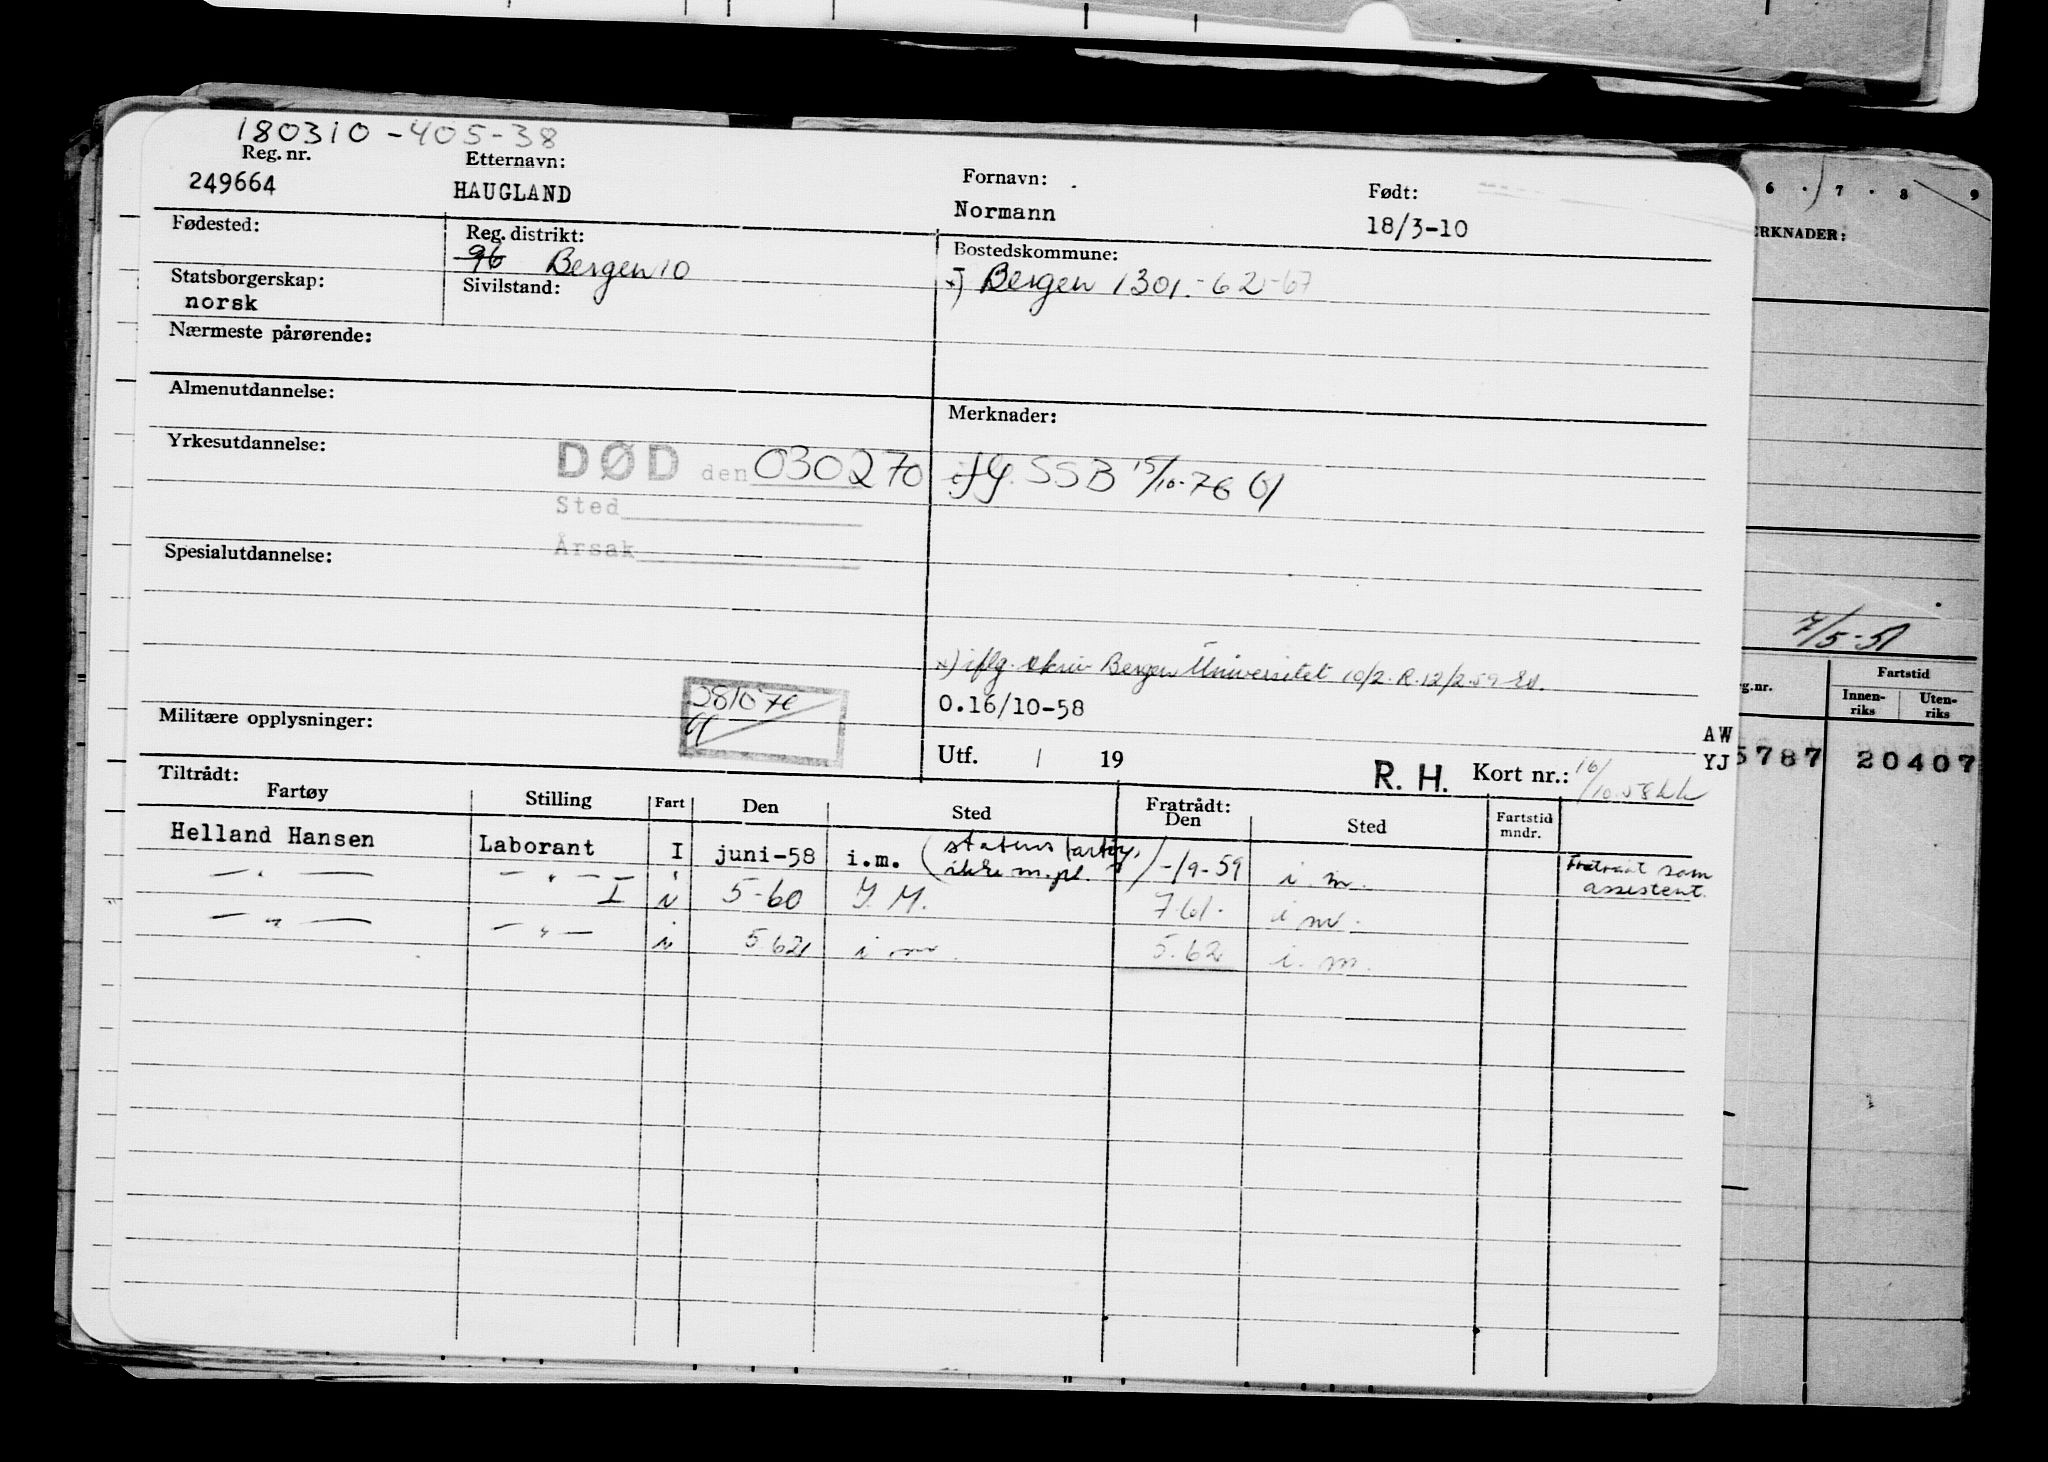 6 7 8 9
180310-405-38
Reg. nr. Etternavn: Fornavn: Født:
249664 HAUGLAND Normann 18/3-10
Fødested: Reg. distrikt: Bostedskommune:
96 Bergen 10 x) Bergen 1301.-62-67
Statsborgerskap: Sivilstand:
norsk
Nærmeste pårørende:
Almenutdannelse: Merknader:
Yrkesutdannelse:
DØD den 030270 ifg. SSB 15/10-76
Sted
Årsak
Spesialutdannelse:
x) iflg. skriv Bergen Universitet 10/2. R. 12/2.59
281076
0.16/10-58
Militære opplysninger:
Utf. / 19 R. H. Kort nr.: 16/10.58
AW
YJ
Tiltrådt: Fratrådt:
Fartøy Stilling Fart Den Sted Den Sted Fartstid mndr.
Helland Hansen Laborant I juni-58 i.m. (statens fartøy, ikke m.pl.) -/9-59 i.m. Fratrådt som assistent.
—"— —"— I i 5-60 I.M. 7.61. i m.
—"— —"— i 5 62 i m. 5.62 i. m.
ERKNADER:
7/5-51
g.nr. Fartstid
Innen-riks Uten-riks
5787 20407